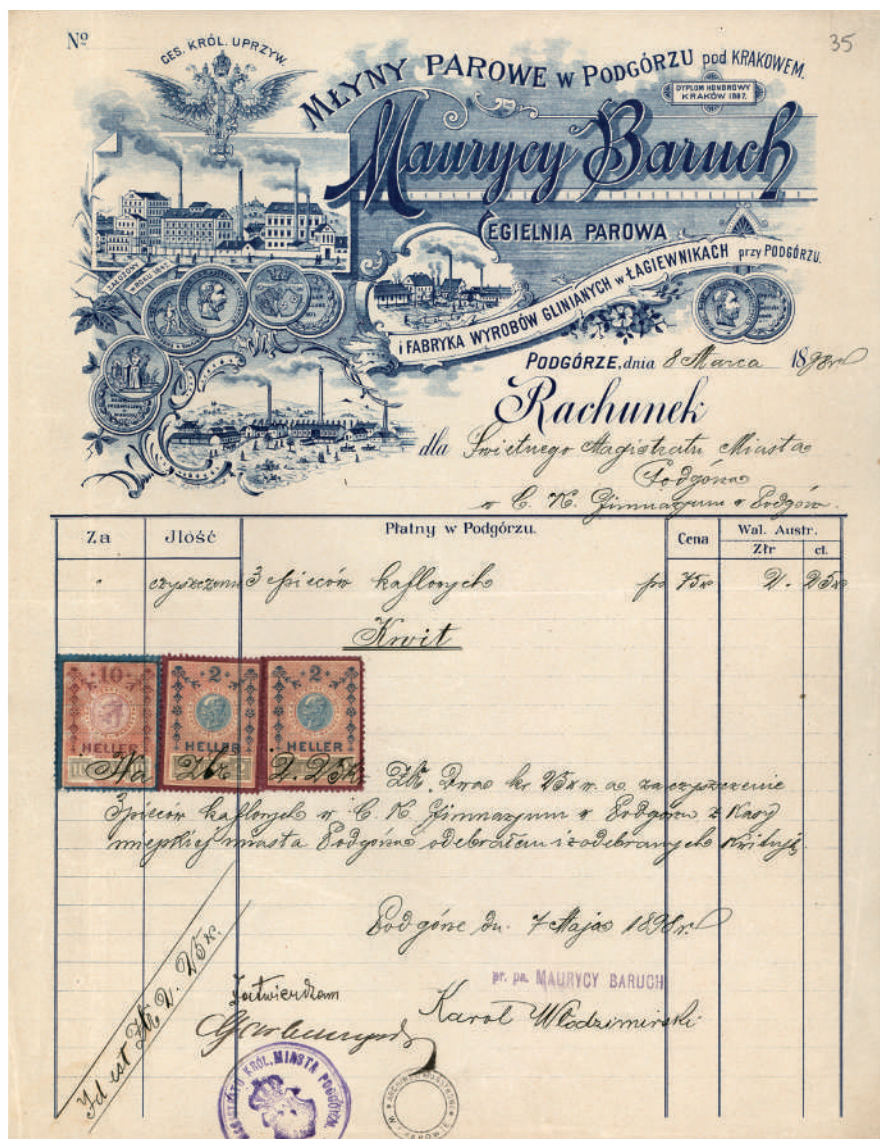 Nº
35
CES. KRÓL. UPRZYW.
MŁYNY PAROWE w PODGÓRZU pod KRAKOWEM.
DYPLOM HONOROWY
KRAKÓW 1887.
Maurycy Baruch
CEGIELNIA PAROWA
i FABRYKA WYROBÓW GLINIANYCH w ŁAGIEWNIKACH przy PODGÓRZU.
ZAŁOŻONY
w ROKU
PODGÓRZE, dnia 8 Marca 1898 r
Rachunek
dla Świetnego Magistratu Miasta
Podgórza
w C. K. Gimnazyum w Podgórz.
Za Jlość Płatny w Podgórzu. Cena Wal. Austr.
Złr ct.
czyszczenie 3 pieców kaflowych po 75 x 2. 25 x
Kwit
10 2 2
HELLER HELLER HELLER
Na Złr 2. 25 x Złr. Dwa kr 25 x w. a. za czyszczenie
3 pieców kaflowych w C. K. Gimnazyum w Podgórzu z Kasy
miejskiej miasta Podgórza odebrałem i z odebranych kwituję.
Podgórze dn. 7 Maja 1898 r.
Id est Złr 2. 25 x.
pr. pa. MAURYCY BARUCH
Zatwierdzam
Karol Włodzimirski
KRÓL. MIASTA PODGÓRZA